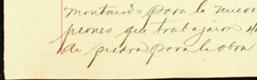 montando para la nueva
peones que trabajaron
de piedra para la obra